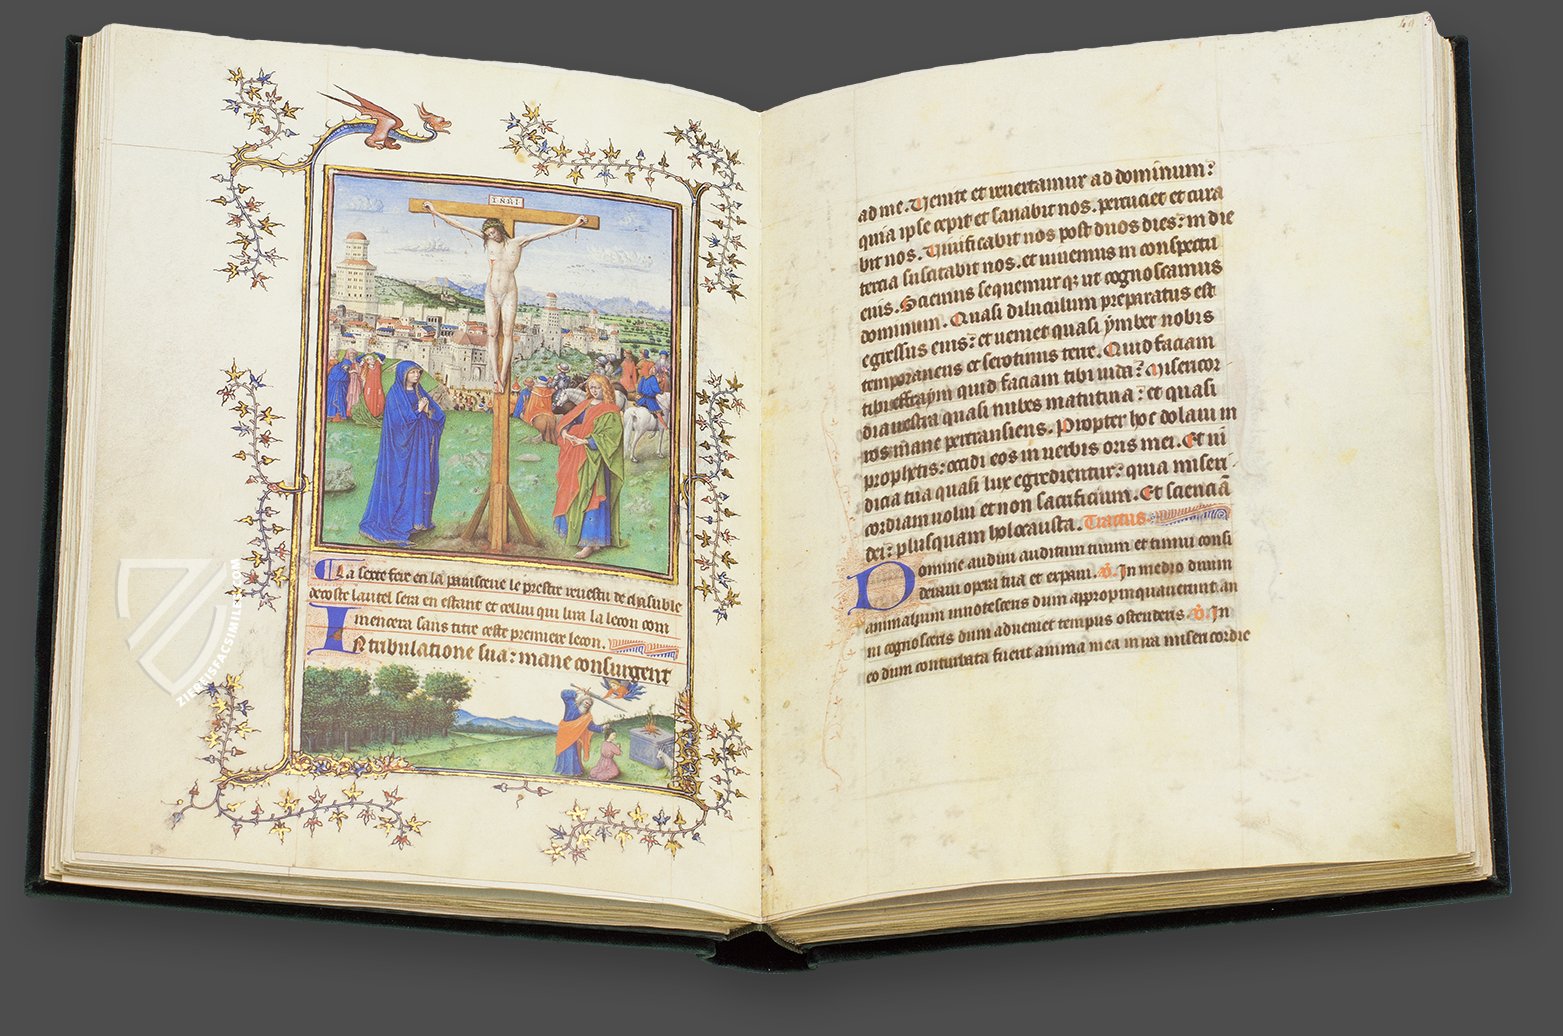 INRI
La sexte fere en la peniscence le prestre reuestu de chasuble
decoste lautel sera en estant et cellui qui lira la lecon com
mencera sans titre ceste premiere lecon.
In tribulatione sua: mane consurgent
ad me. Uenite et reuertamur ad dominum:
quia ipse cepit et sanabit nos. percuciet et cura
bit nos. Uiuificabit nos post duos dies: in die
tercia suscitabit nos. et uiuemus in conspectu
eius. Sciemus sequemur qz ut cognoscamus
dominum. Quasi diluculum preparatus est
egressus eius: et ueniet quasi ymber nobis
temporaneus et serotinus terre. Quid faciam
tibi effraym quid faciam tibi iuda? Misericor
dia uestra quasi nubes matutina: et quasi
ros mane pertransiens. Propter hoc dolaui in
prophetis: occidi eos in uerbis oris mei. Et iu
dicia tua quasi lux egredientur: quia miseri
cordiam uolui et non sacrificium. Et scienciā
dei: plusquam holocausta. Tractus
Domine audiui auditum tuum et timui consi
deraui opera tua et expaui. In medio duum
animalium innotesceris dum appropinquauerint an
ni cognosceris dum aduenier tempus ostenderis. In
eo dum conturbata fuerit anima mea in ira misericordie
ZIEREISFACSIMILES.COM